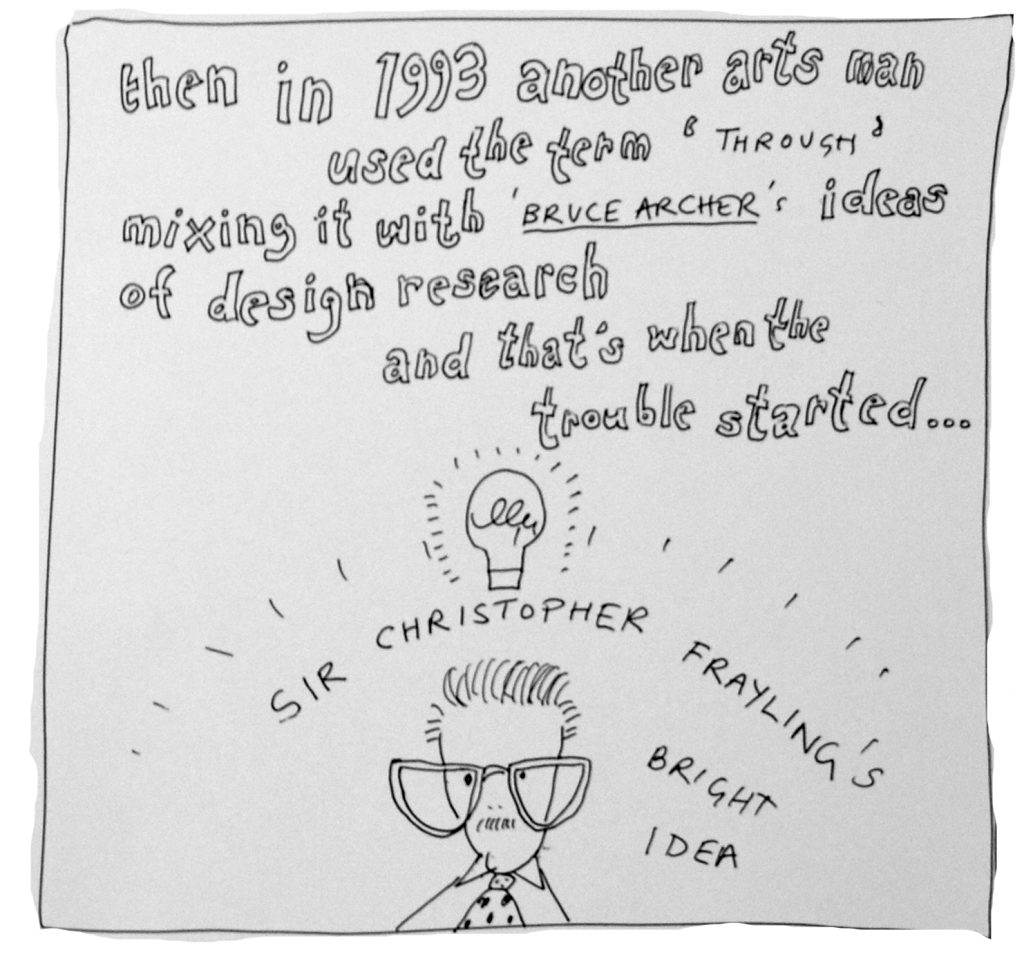 then in 1993 another arts man
used the term 'THROUGH'
mixing it with 'BRUCE ARCHER's ideas
of design research
and that's when the
trouble started...
SIR CHRISTOPHER FRAYLING'S
BRIGHT
IDEA